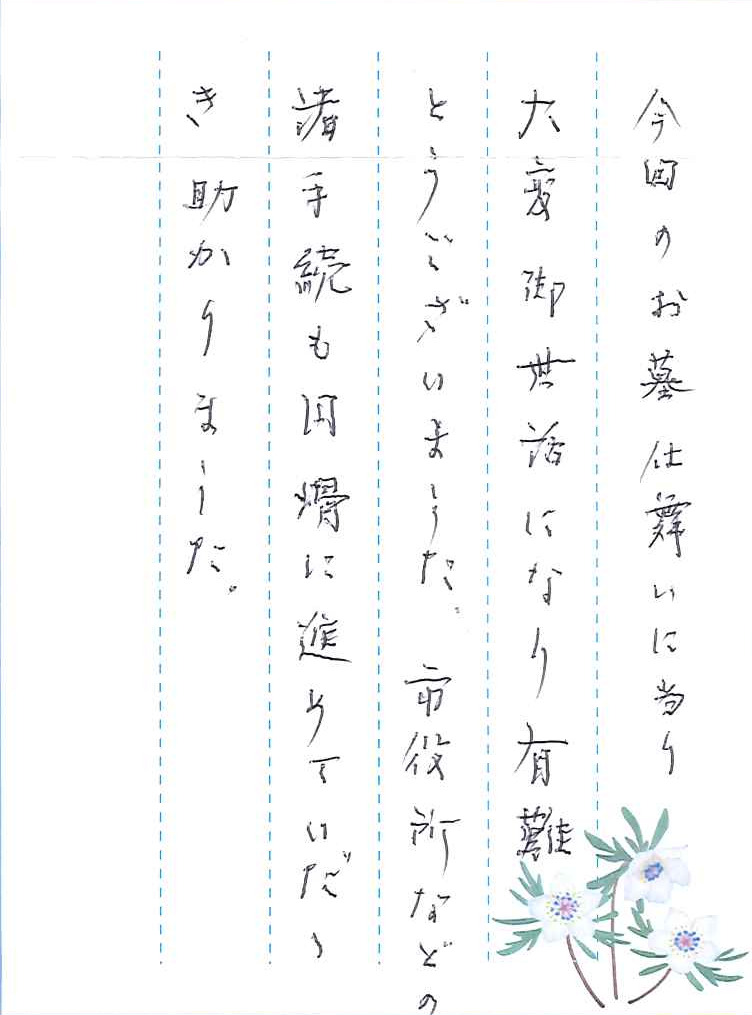 今回のお墓仕舞いに当り
大変御世話になり有難
とうございました。市役所などの
諸手続も円滑に進めていただ
き助かりました。